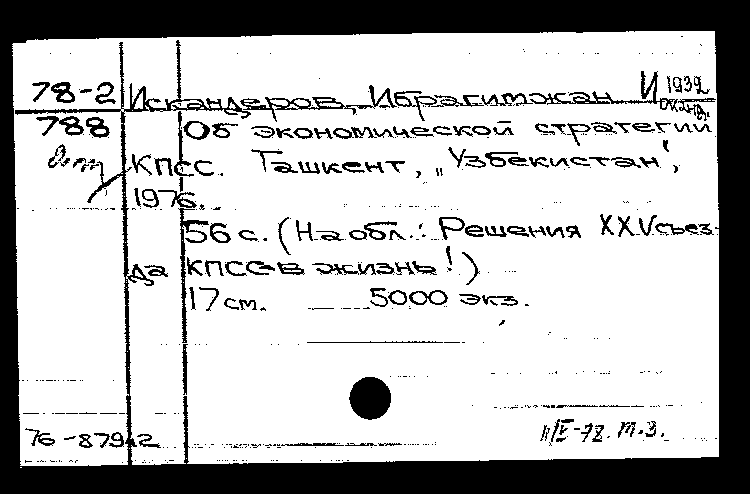 78-2 Искандеров, Ибрагимжан И 1932
788 Об экономической стратегии
КПСС. Ташкент, „Узбекистан",
1976.
56 с. (На обл.: Решения XXV съез-
да КПСС - в жизнь!)
17 см. 5000 экз.
76-87942
11/IV-78. т.з.